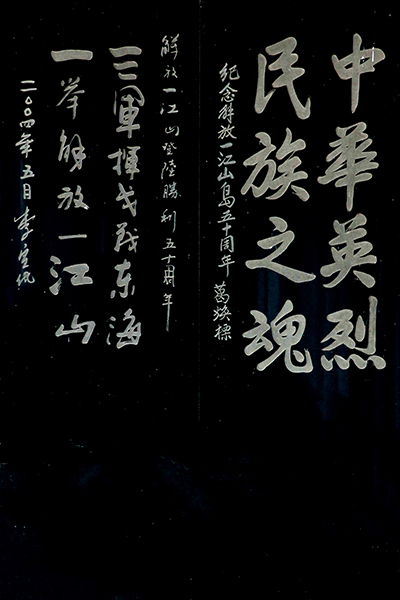 中華英烈
民族之魂
紀念解放一江山島五十周年 葛焕標
解放一江山登陸勝利五十周年
三軍揮戈战东海
一举解放一江山
二〇〇四年五月 李宣化